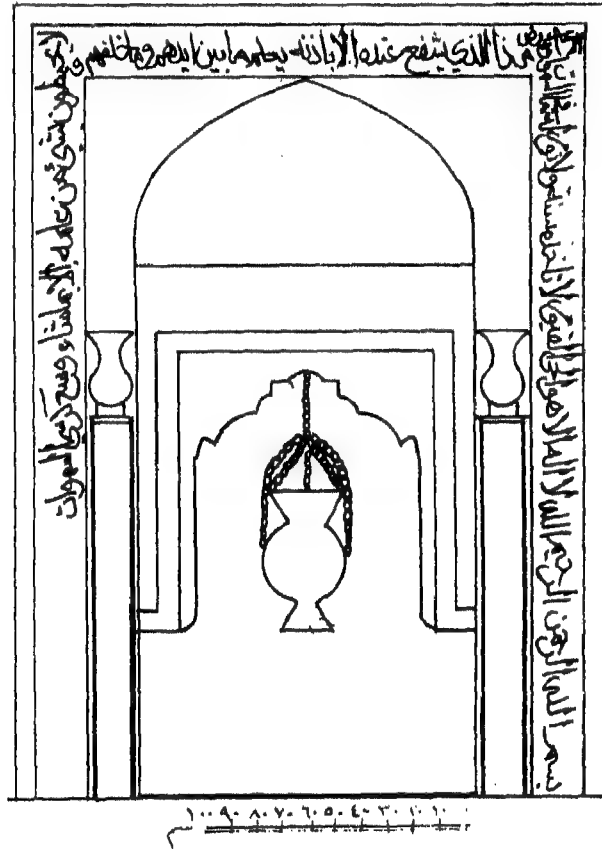 بسم الله الرحمن الرحيم الله لا اله الا هو الحي القيوم لا تاخذه سنة ولا نوم له ما في السموات
من ذا الذي يشفع عنده الا باذنه يعلم ما بين ايديهم وما خلفهم و
لا يحيطون بشيء من علمه الا بما شاء وسع كرسيه السموات
١٠٠ ٩٠ ٨٠ ٧٠ ٦٠ ٥٠ ٤٠ ٣٠ ٢٠ ١٠ ٠
سم